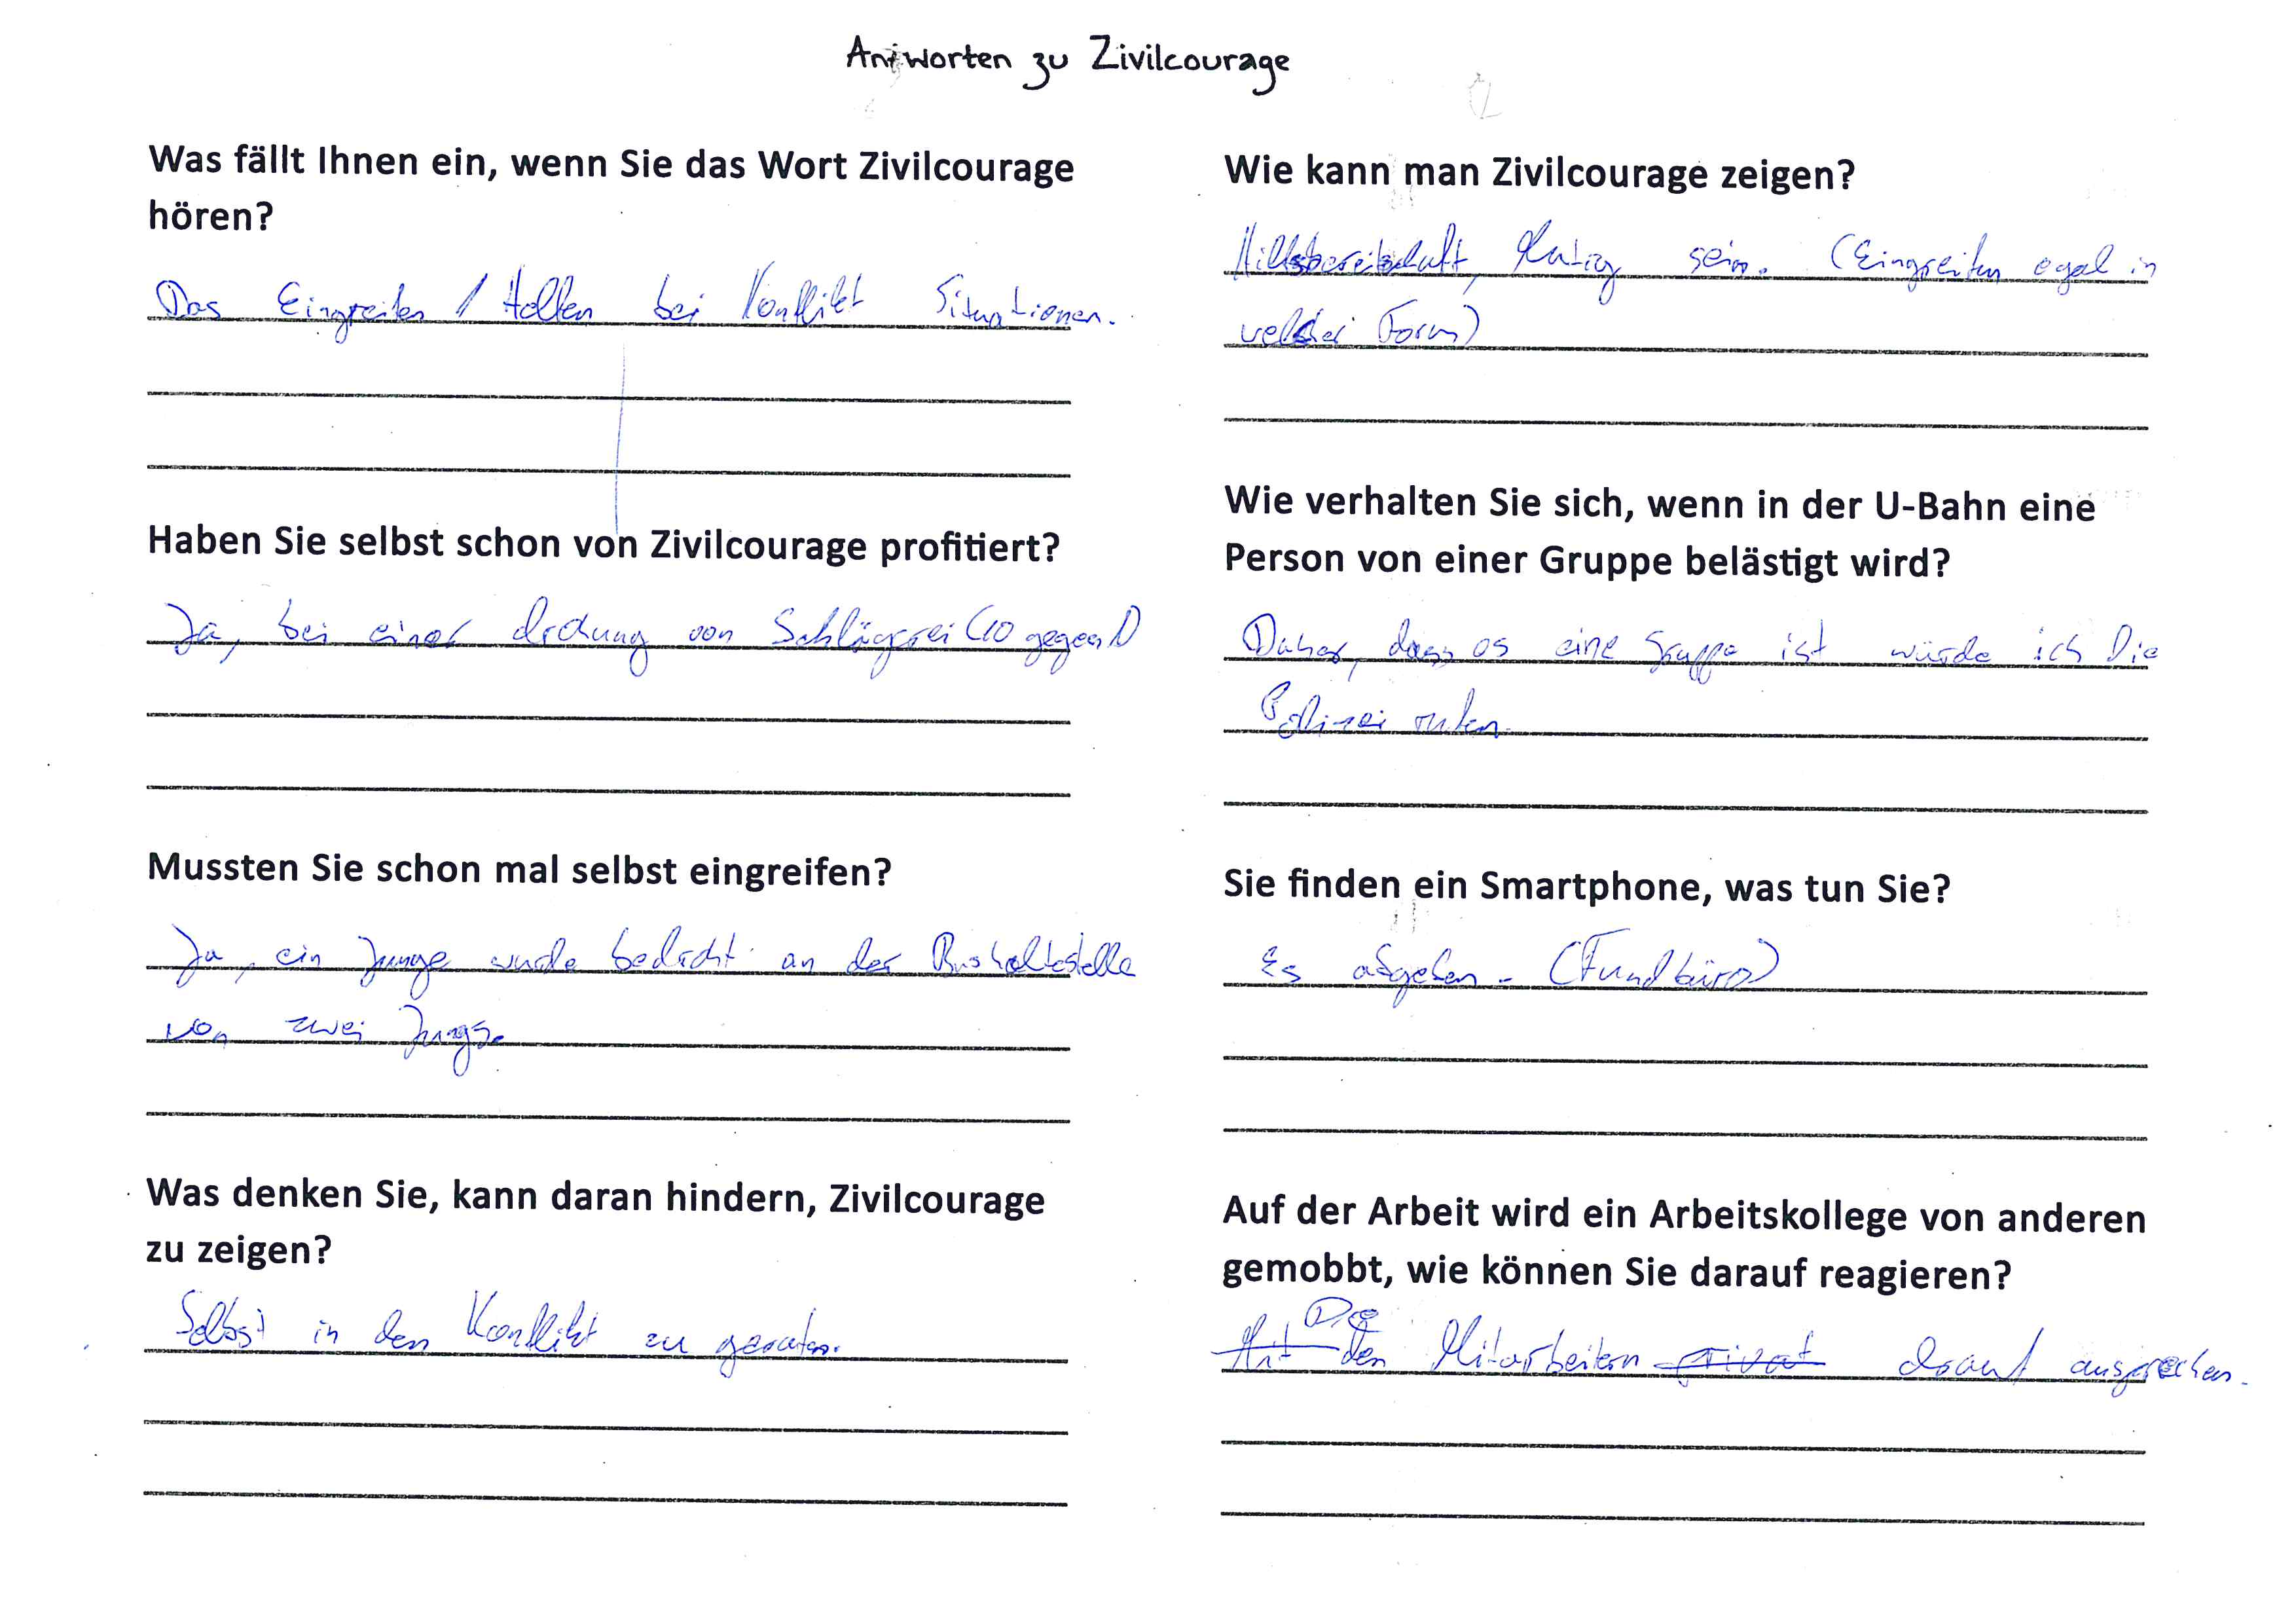 Antworten zu Zivilcourage
Was fällt Ihnen ein, wenn Sie das Wort Zivilcourage
hören?
Das Eingreifen / Helfen bei Konflikt Situationen.
Haben Sie selbst schon von Zivilcourage profitiert?
Ja, bei einer drohung von Schlägerei (10 gegen 1)
Mussten Sie schon mal selbst eingreifen?
Ja, ein Junge wurde bedroht an der Bushaltestelle
von zwei Jungs.
Was denken Sie, kann daran hindern, Zivilcourage
zu zeigen?
Selbst in den Konflikt zu geraten.
Wie kann man Zivilcourage zeigen?
Hilfsbereitschaft, Mutig sein. (Eingreifen egal in
welcher Form)
Wie verhalten Sie sich, wenn in der U-Bahn eine
Person von einer Gruppe belästigt wird?
Daher, dass es eine Gruppe ist würde ich Die
Polizei rufen.
Sie finden ein Smartphone, was tun Sie?
Es abgeben. (Fundbüro)
Auf der Arbeit wird ein Arbeitskollege von anderen
gemobbt, wie können Sie darauf reagieren?
Die
Mit den Mitarbeitern privat drauf ansprechen.